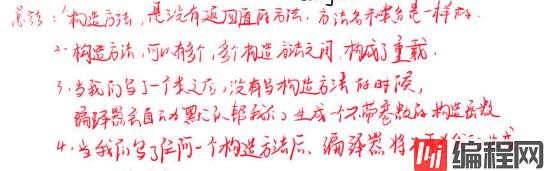 总结：1构造方法，是没有返回值的方法，方法名和类名是一样的。
2. 构造方法，可以有多个，多个构造方法之间，构成了重载.
3. 当我们写了一个类之后，没有写构造方法的时候，
编译器会自动为默认的帮我们生成一个不带参数的构造函数
4. 当我们写了任何一个构造方法后，编译器将不
编程网